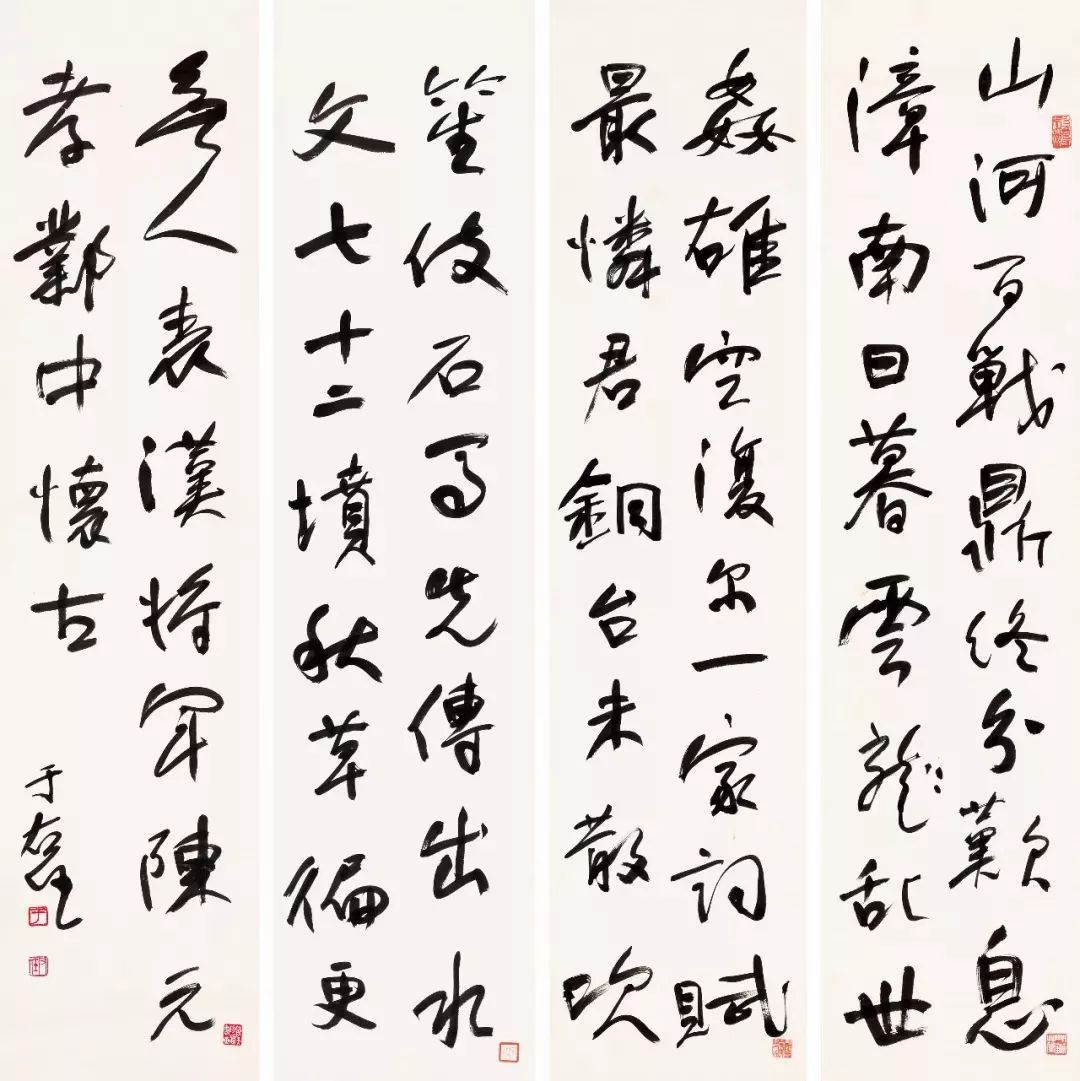 山河百戰鼎終分歎息
漳南日暮雲龍亂世
姦雄空復尔一家詞賦
最憐君銅台未散吹
笙伎石馬先傳出水
文七十二墳秋草徧更
無人表漢將軍陳元
孝鄴中懷古
于右任